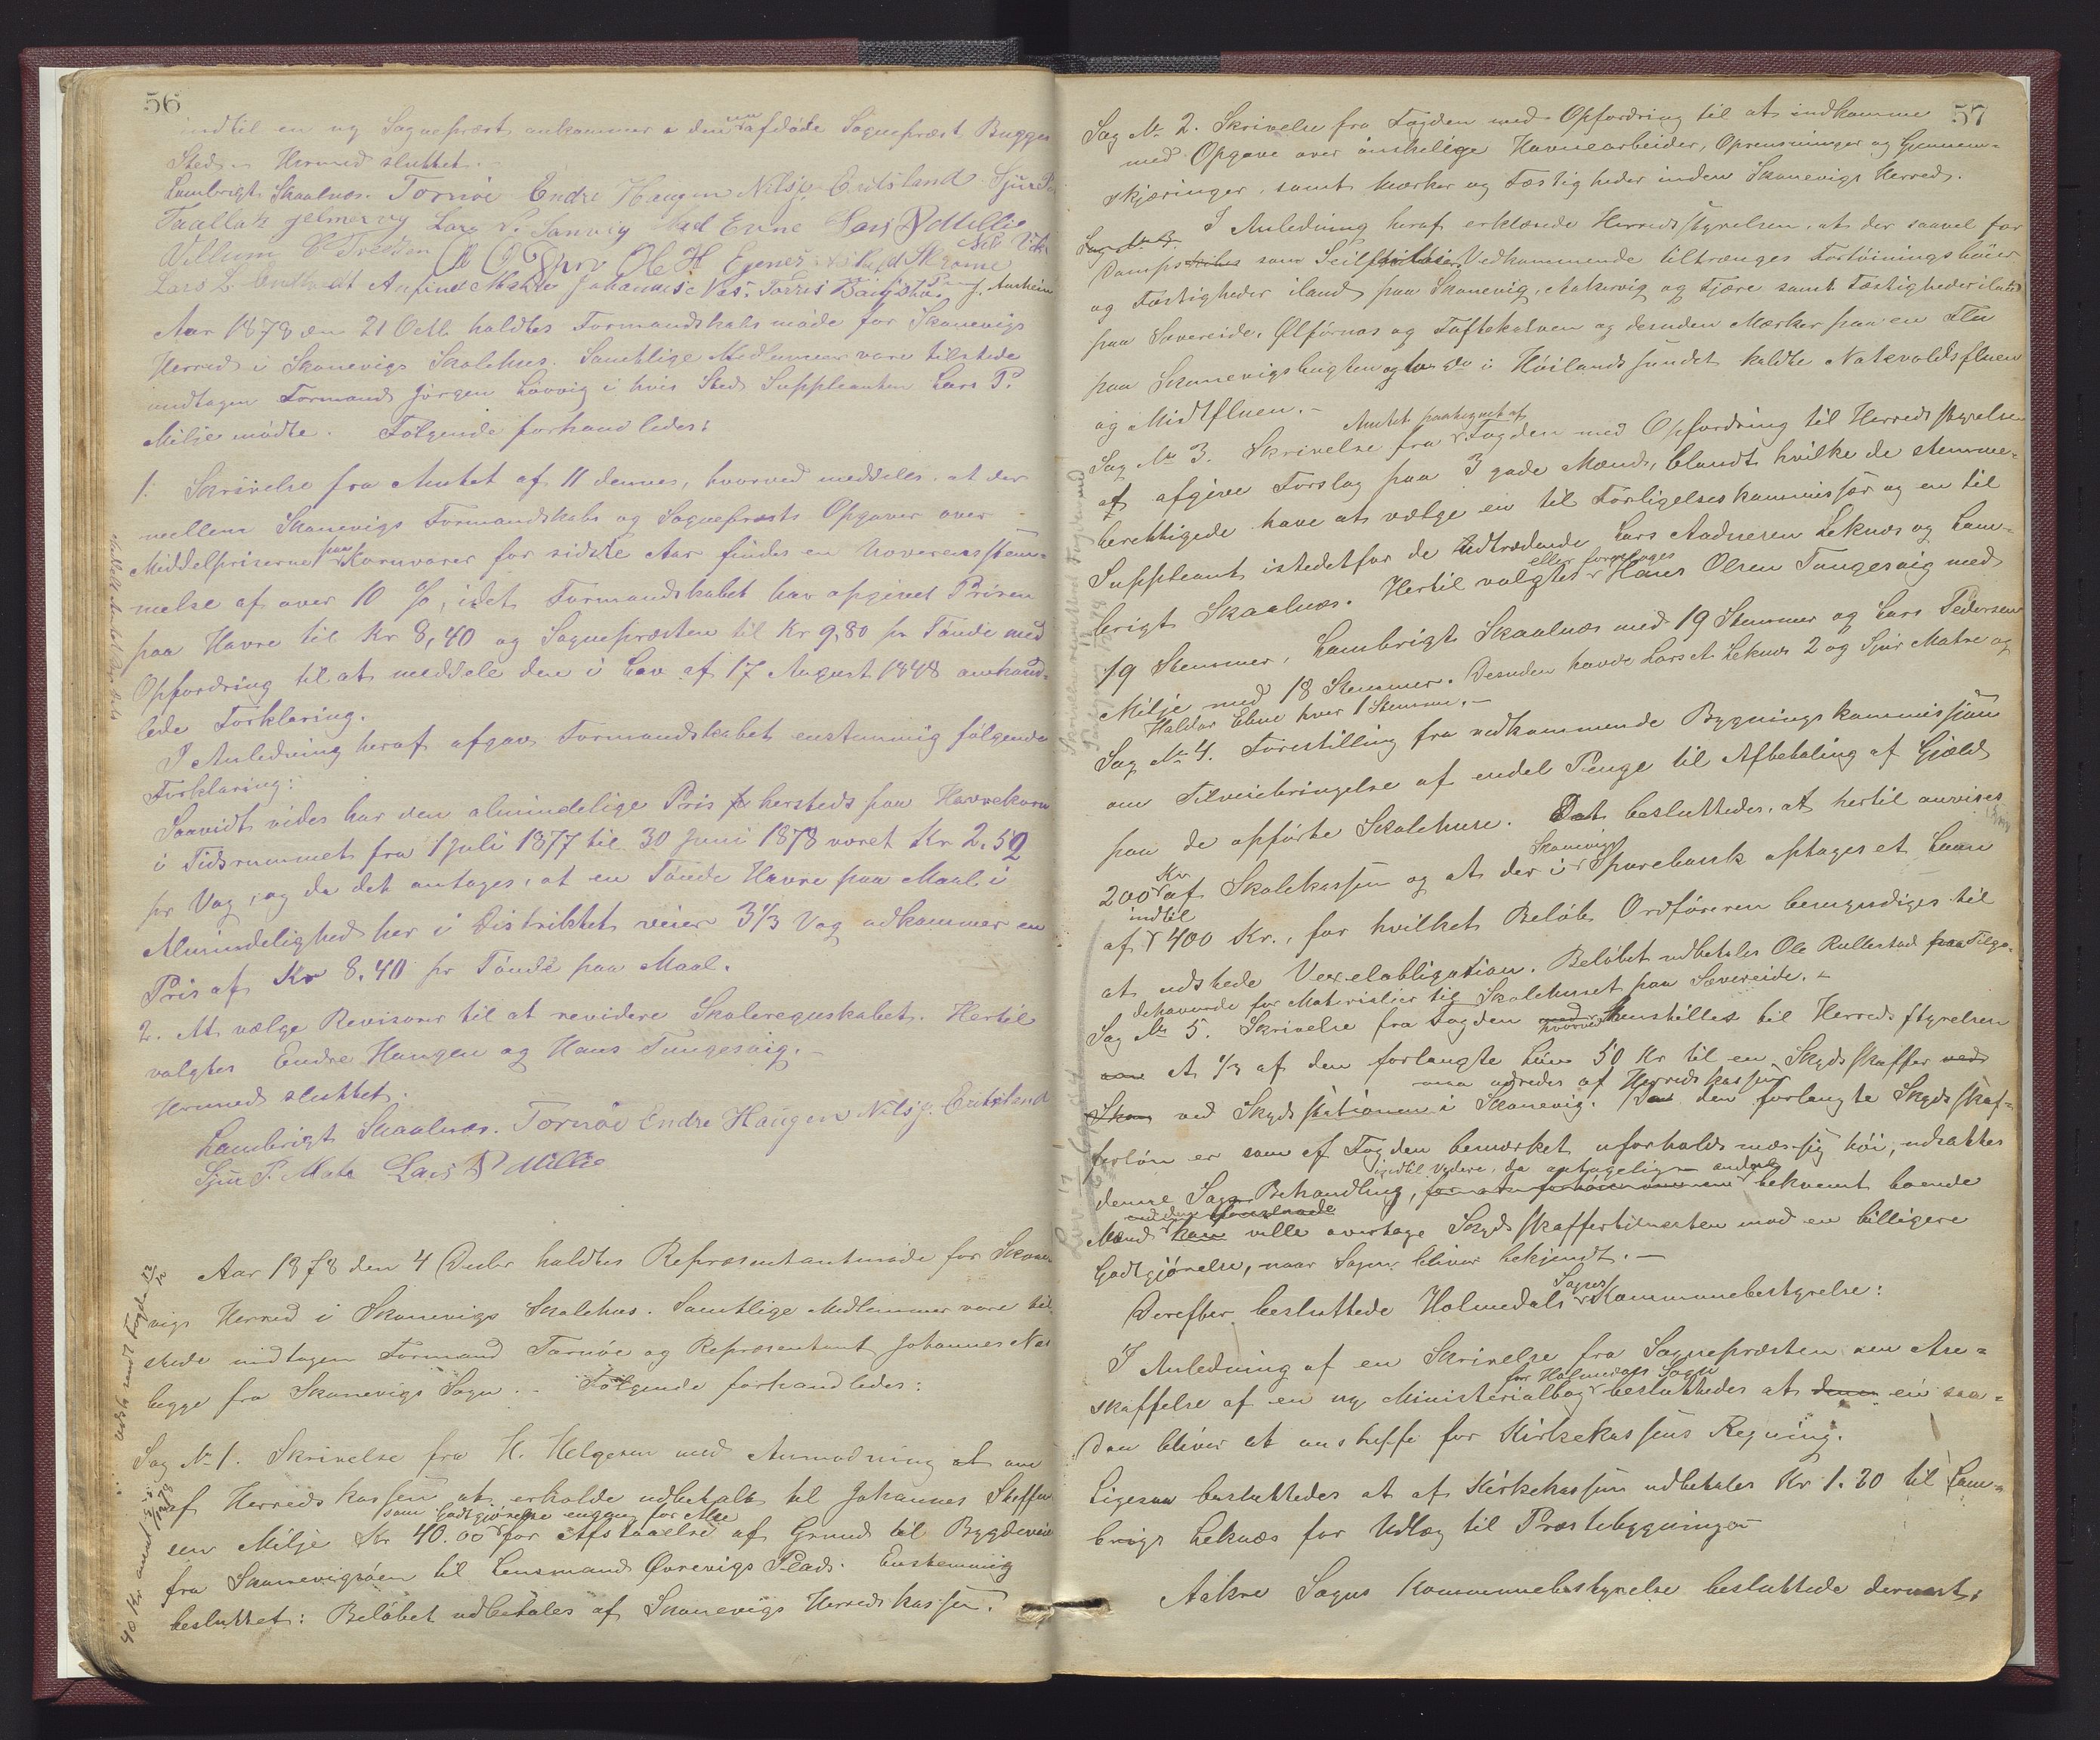 56
indtil en ny Sogneprest ankommer i den nu afdøde Sogneprest Bugges
Sted. – Hermed sluttet. –
Lambrigt Skaalnæs. Tornöe Endre Haugen Nils J. Eritsland Sjur P.
Taallak Lars L. Sanvig Lars P Millie
Villum Ole H. Ebne
Lars L. Anfind Matre Johannes Næs. Torres J. Aarhein
Aar 1878 den 21 Octb. holdtes Formandskabsmöde for Skonevigs
Herred i Skonevigs Skolehus. Samtlige Medlemmer vare tilstede
undtagen Formand Jörgen Lövvig i hvis Sted Suppleanten Lars P.
Milje mödte. Fölgende forhandledes:
1. Skrivelse fra Amtet af 11 dennes, hvorved meddeles, at der
mellem Skonevigs Formandskabs og Sogneprests Opgaver over
Middelpriserne paa Kornvarer for sidste Aar findes en Uoverensstem-
melse af over 10 %, idet Formandskabet har opgivet Prisen
paa Havre til Kr 8,40 og Sognepresten til Kr 9,80 pr Tönde med
Opfordring til at meddele den i Lov af 17 August 1848 omhand-
lede Forklaring.
I Anledning heraf afgav Formandskabet enstemmig fölgende
Forklaring:
Saavidt vides har den almindelige Pris hersteds paa Havrekorn
i Tidsrummet fra 1 Juli 1877 til 30 Juni 1878 været Kr. 2.52
pr Vog, og da det antages, at en Tönde Havre paa Maal i
Almindelighed her i Distriktet veier 3 1/3 Vog udkommer en
Pris af Kr 8.40 pr Tönde paa Maal.
2. At vælge Revisorer til at revidere Skoleregnskabet. Hertil
valgtes Endre Haugen og Hans Tungesvig. –
Hermed sluttet.
Lambrigt Skaalnæs. Tornöe Endre Haugen Nils J. Eritsland
Sjur P. Matre Lars P Millie
Aar 1878 den 4 Decbr holdtes Repræsentantmöde for Skone-
vigs Herred i Skonevigs Skolehus. Samtlige Medlemmer vare til-
stede undtagen Formand Tornöe og Repræsentant Johannes Næs
begge fra Skonevigs Sogn. – Fölgende forhandledes:
Sag No 1. Skrivelse fra H. Helgesen med Anmodning at om
af Herredskassen at erholde udbetalt til Johannes Steffen-
som Godtgjörelse engang for Alle
sen Milje Kr 40.00 for Afstaaelse af Grund til Bygdevei
fra Skonevigsöen til Lensmand Øvrevigs Plads. Enstemmig
besluttet: Belöbet udbetales af Skonevigs Herredskasse.
57
Sag No 2. Skrivelse fra Fogden med Opfordring til at indkomme
med Opgave over önskelige Havnearbeider, Oprensninger og Gjennem-
skjæringer, samt Mærker og Fæstigheder inden Skonevigs Herred.
Sag No 3. I Anledning heraf erklærede Herredsstyrelsen, at der saavel for
Dampskibes som Seilskibes Vedkommende tiltrænges Fortöiningsböier
og Fæstigheder iland paa Skonevig, Aakervig og Fjære samt Fæstigheder iland
paa Sævereide, Ølförnæs og Toftekalven og desuden Mærker paa en Flu
paa Skonevigsbugten og to do i Höilandssundet kaldte Nakvoldsfluen
og Midtfluen. –
Amtet paategnet af
Sag No 3. Skrivelse fra Fogden med Opfordring til Herredsstyrelsen
at afgive Forslag paa 3 gode Mænd, blandt hvilke de stemme-
berettigede have at vælge en til Forligelseskommissær og en til
Suppleant istedetfor de udtrædende Lars Aadnesen Leknes og Lam-
eller foresloges
brigt Skaalnæs. Hertil valgtes Hans Olsen Tungesvig med
19 Stemmer, Lambrigt Skaalnæs med 19 Stemmer og Lars Pedersen
Milje med 18 Stemmer. Desuden havde Lars Leknes 2 og Sjur Matre og
Haldor Ebne hver 1 Stemme. –
Sag No 4. Forestilling fra vedkommende Bygningskommission
om Tilveiebringelse af endel Penge til Afbetaling af Gjæld
paa de opförte Skolehuse. Det besluttedes, at hertil anvises
Skonevigs
200 Kr af Skolekassen og at der i Sparebank optages et Laan
indtil
af 400 Kr., for hvilket Belöb Ordföreren bemyndiges til
at udstede Vexelobligation. Belöbet udbetales Ole Rullestad Tilgo-
dehavende for Materialier til Skolehuset paa Sævereide. –
Sag No 5. Skrivelse fra Fogden hvorved henstilles til Herredsstyrelsen
om at 1/3 af den forlangte Lön 50 Kr til en Skydsskaffer ved
maa udredes af Herredskassen
Skon ved Skydsstationen i Skonevig. Da den forlangte Skydsskaf-
ferlön er som af Fogden bemærket uforholdsmæssig höi, udsattes
indtil videre, da antagelig andre
denne Sags Behandling, bekvemt boende
Mænd ville overtage Skydsskaffertjenesten mod en billigere
Godtgjörelse, naar Sagen bliver bekjendt. –
Derefter besluttede Holmedals Sogns Kommunebestyrelse:
I Anledning af en Skrivelse fra Sognepresten om An-
for Holmedals Sogn
skaffelse af en ny Ministerialbog besluttedes at en saa-
dan bliver at anskaffe for Kirkekassens Regning.
Ligesaa besluttedes at af Kirkekassen udbetales Kr 1.20 til Lam-
brigt Leknæs for Udlæg til Præstebygningen
Aakre Sogns Kommunebestyrelse besluttede dernæst: